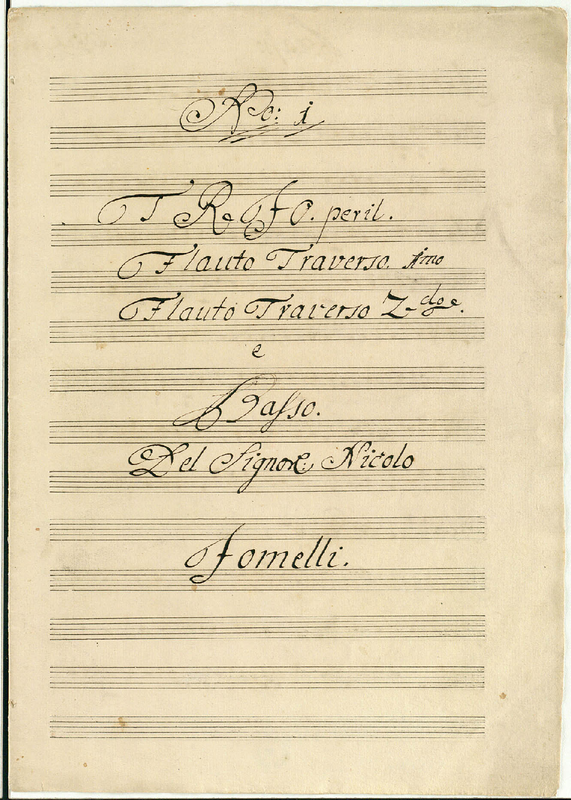 No: 1
TREJO. peril.
Flauto Traverso. Imo
Flauto Traverso 2-do e.
e
Basso.
Del Signore: Nicolo
Jomelli.